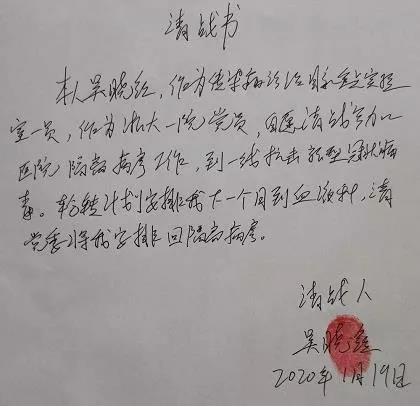 请战书
本人吴晓鑫，作为传染病诊治国家重点实验
室一员，作为浙大一院党员，自愿请战参加
医院隔离病房工作，到一线抗击新型冠状病
毒。轮转计划安排我下一个月到血液科，请
党委将我安排回隔离病房。
请战人
吴晓鑫
2020年1月19日